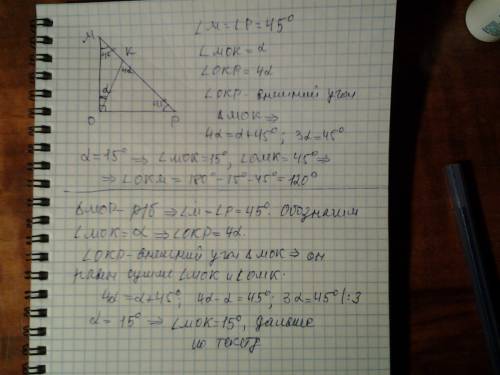 M
45°
K
4α
α
45°
O
P
∠M = ∠P = 45°
∠MOK = α
∠OKP = 4α
∠OKP - внешний угол
ΔMOK ⇒
4α = α + 45°; 3α = 45°
α = 15° ⇒ ∠MOK = 15°, ∠OMK = 45° ⇒
⇒ ∠OKM = 180° - 15° - 45° = 120°
ΔMOP - р/б ⇒ ∠M = ∠P = 45°. Обозначим
∠MOK = α ⇒ ∠OKP = 4α.
∠OKP - внешний угол ΔMOK ⇒ он
равен сумме ∠MOK и ∠OMK.
4α = α + 45°; 4α - α = 45°; 3α = 45° | : 3
α = 15° ⇒ ∠MOK = 15°, дальше
по тексту